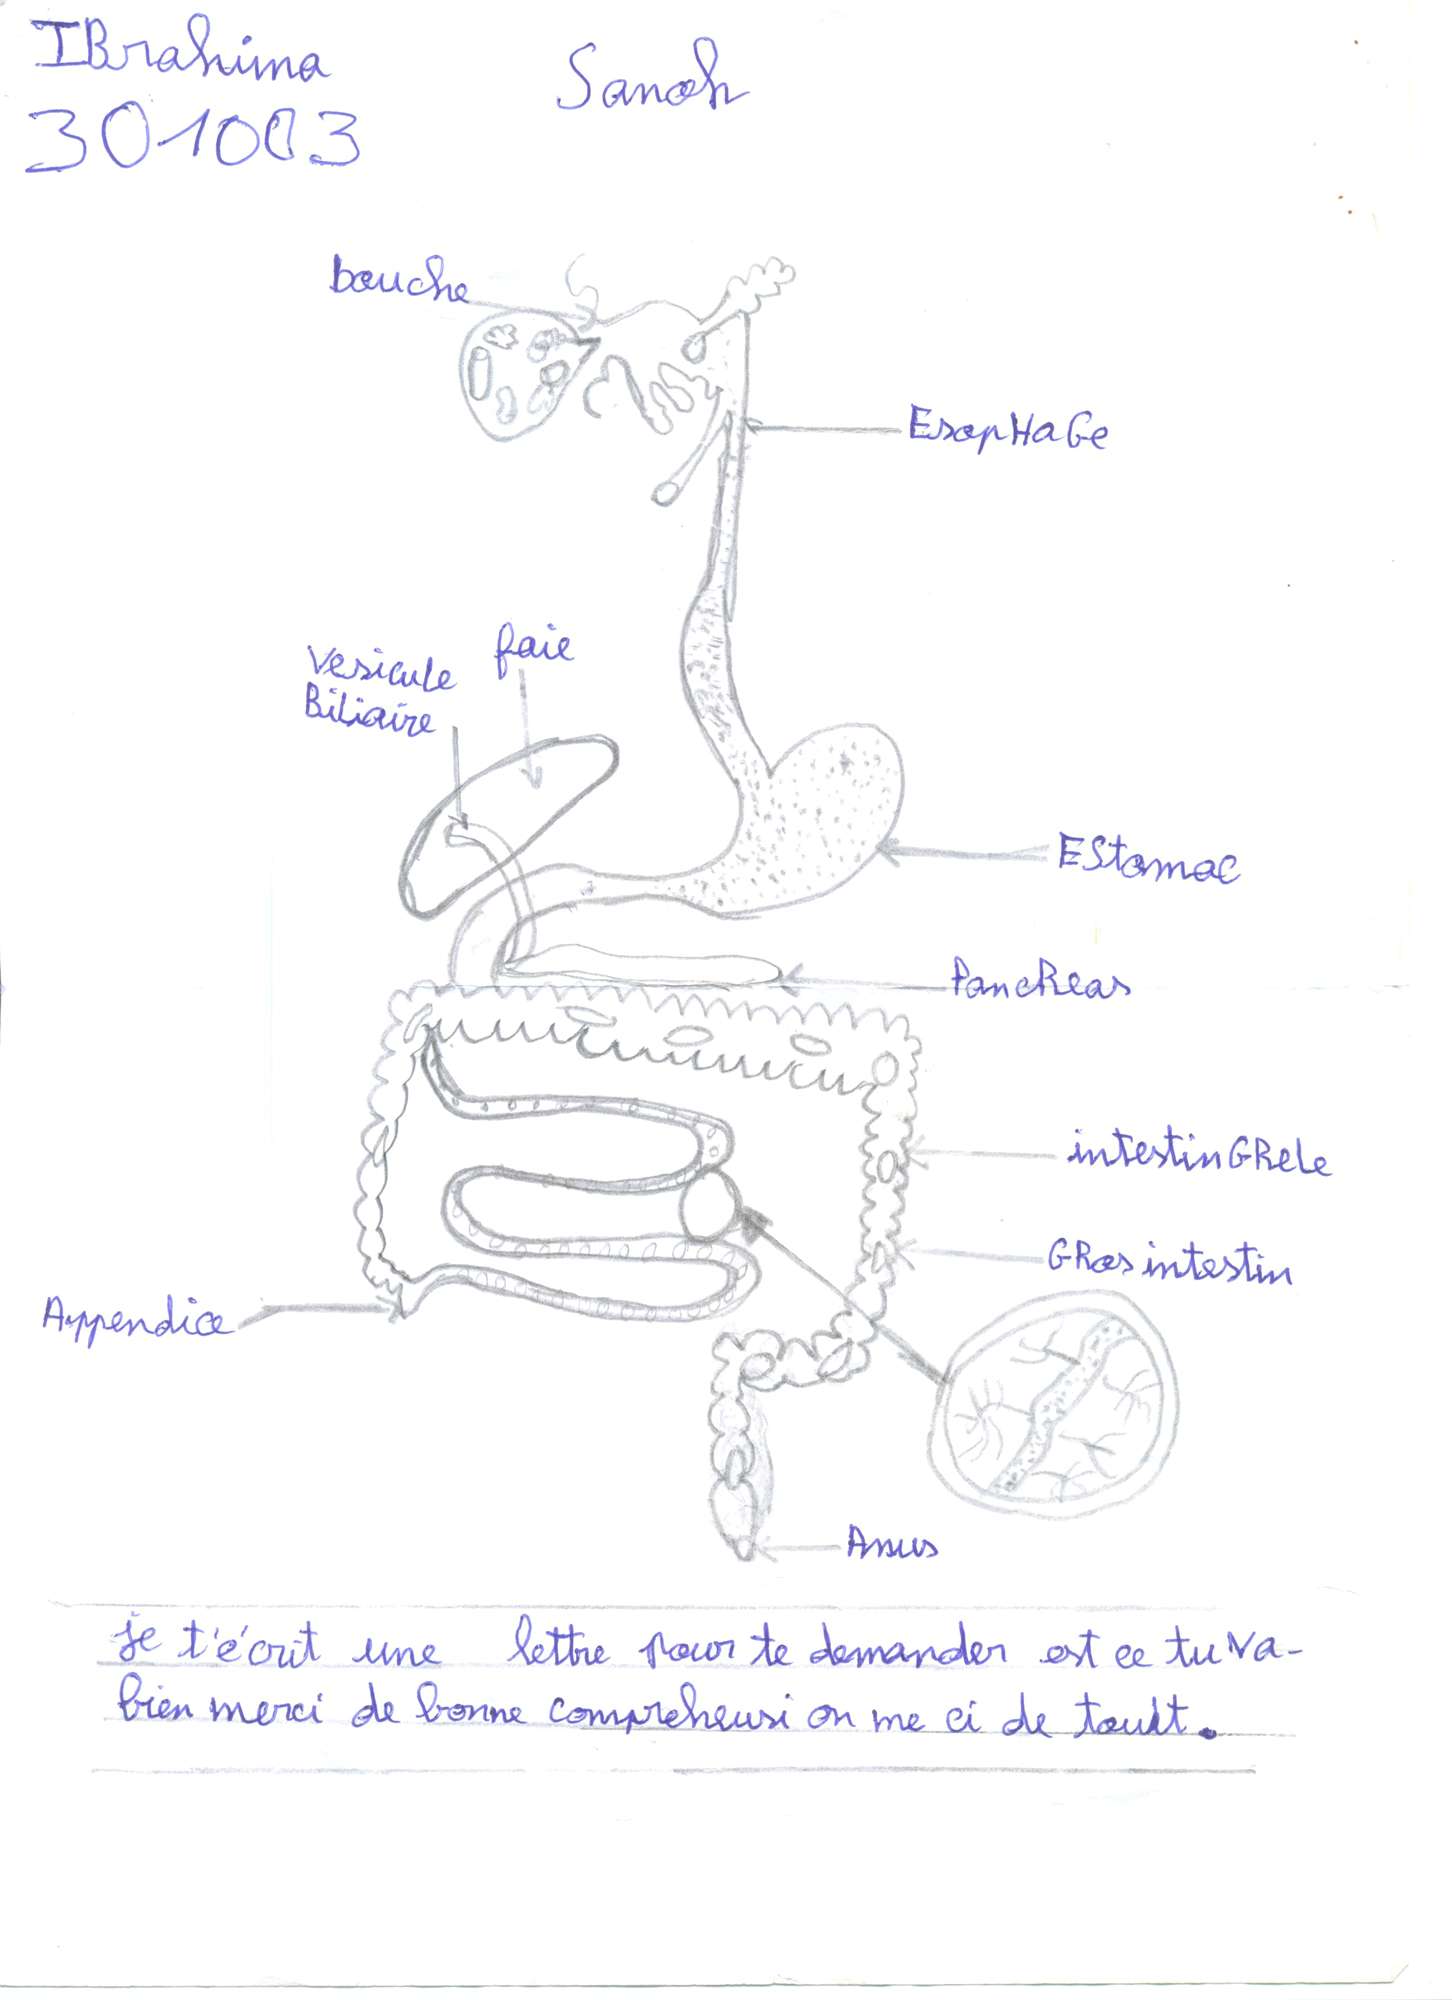 IBrahima Sanoh
301003
bouche
EsopHaGe
Vesicule
Biliaire
faie
EStomac
PancReas
intestinGRele
GRosintestin
Appendice
Anus
je t'écrit une lettre pour te demander est ce tu va-
bien merci de bonne compreheusi on me ci de toutt.